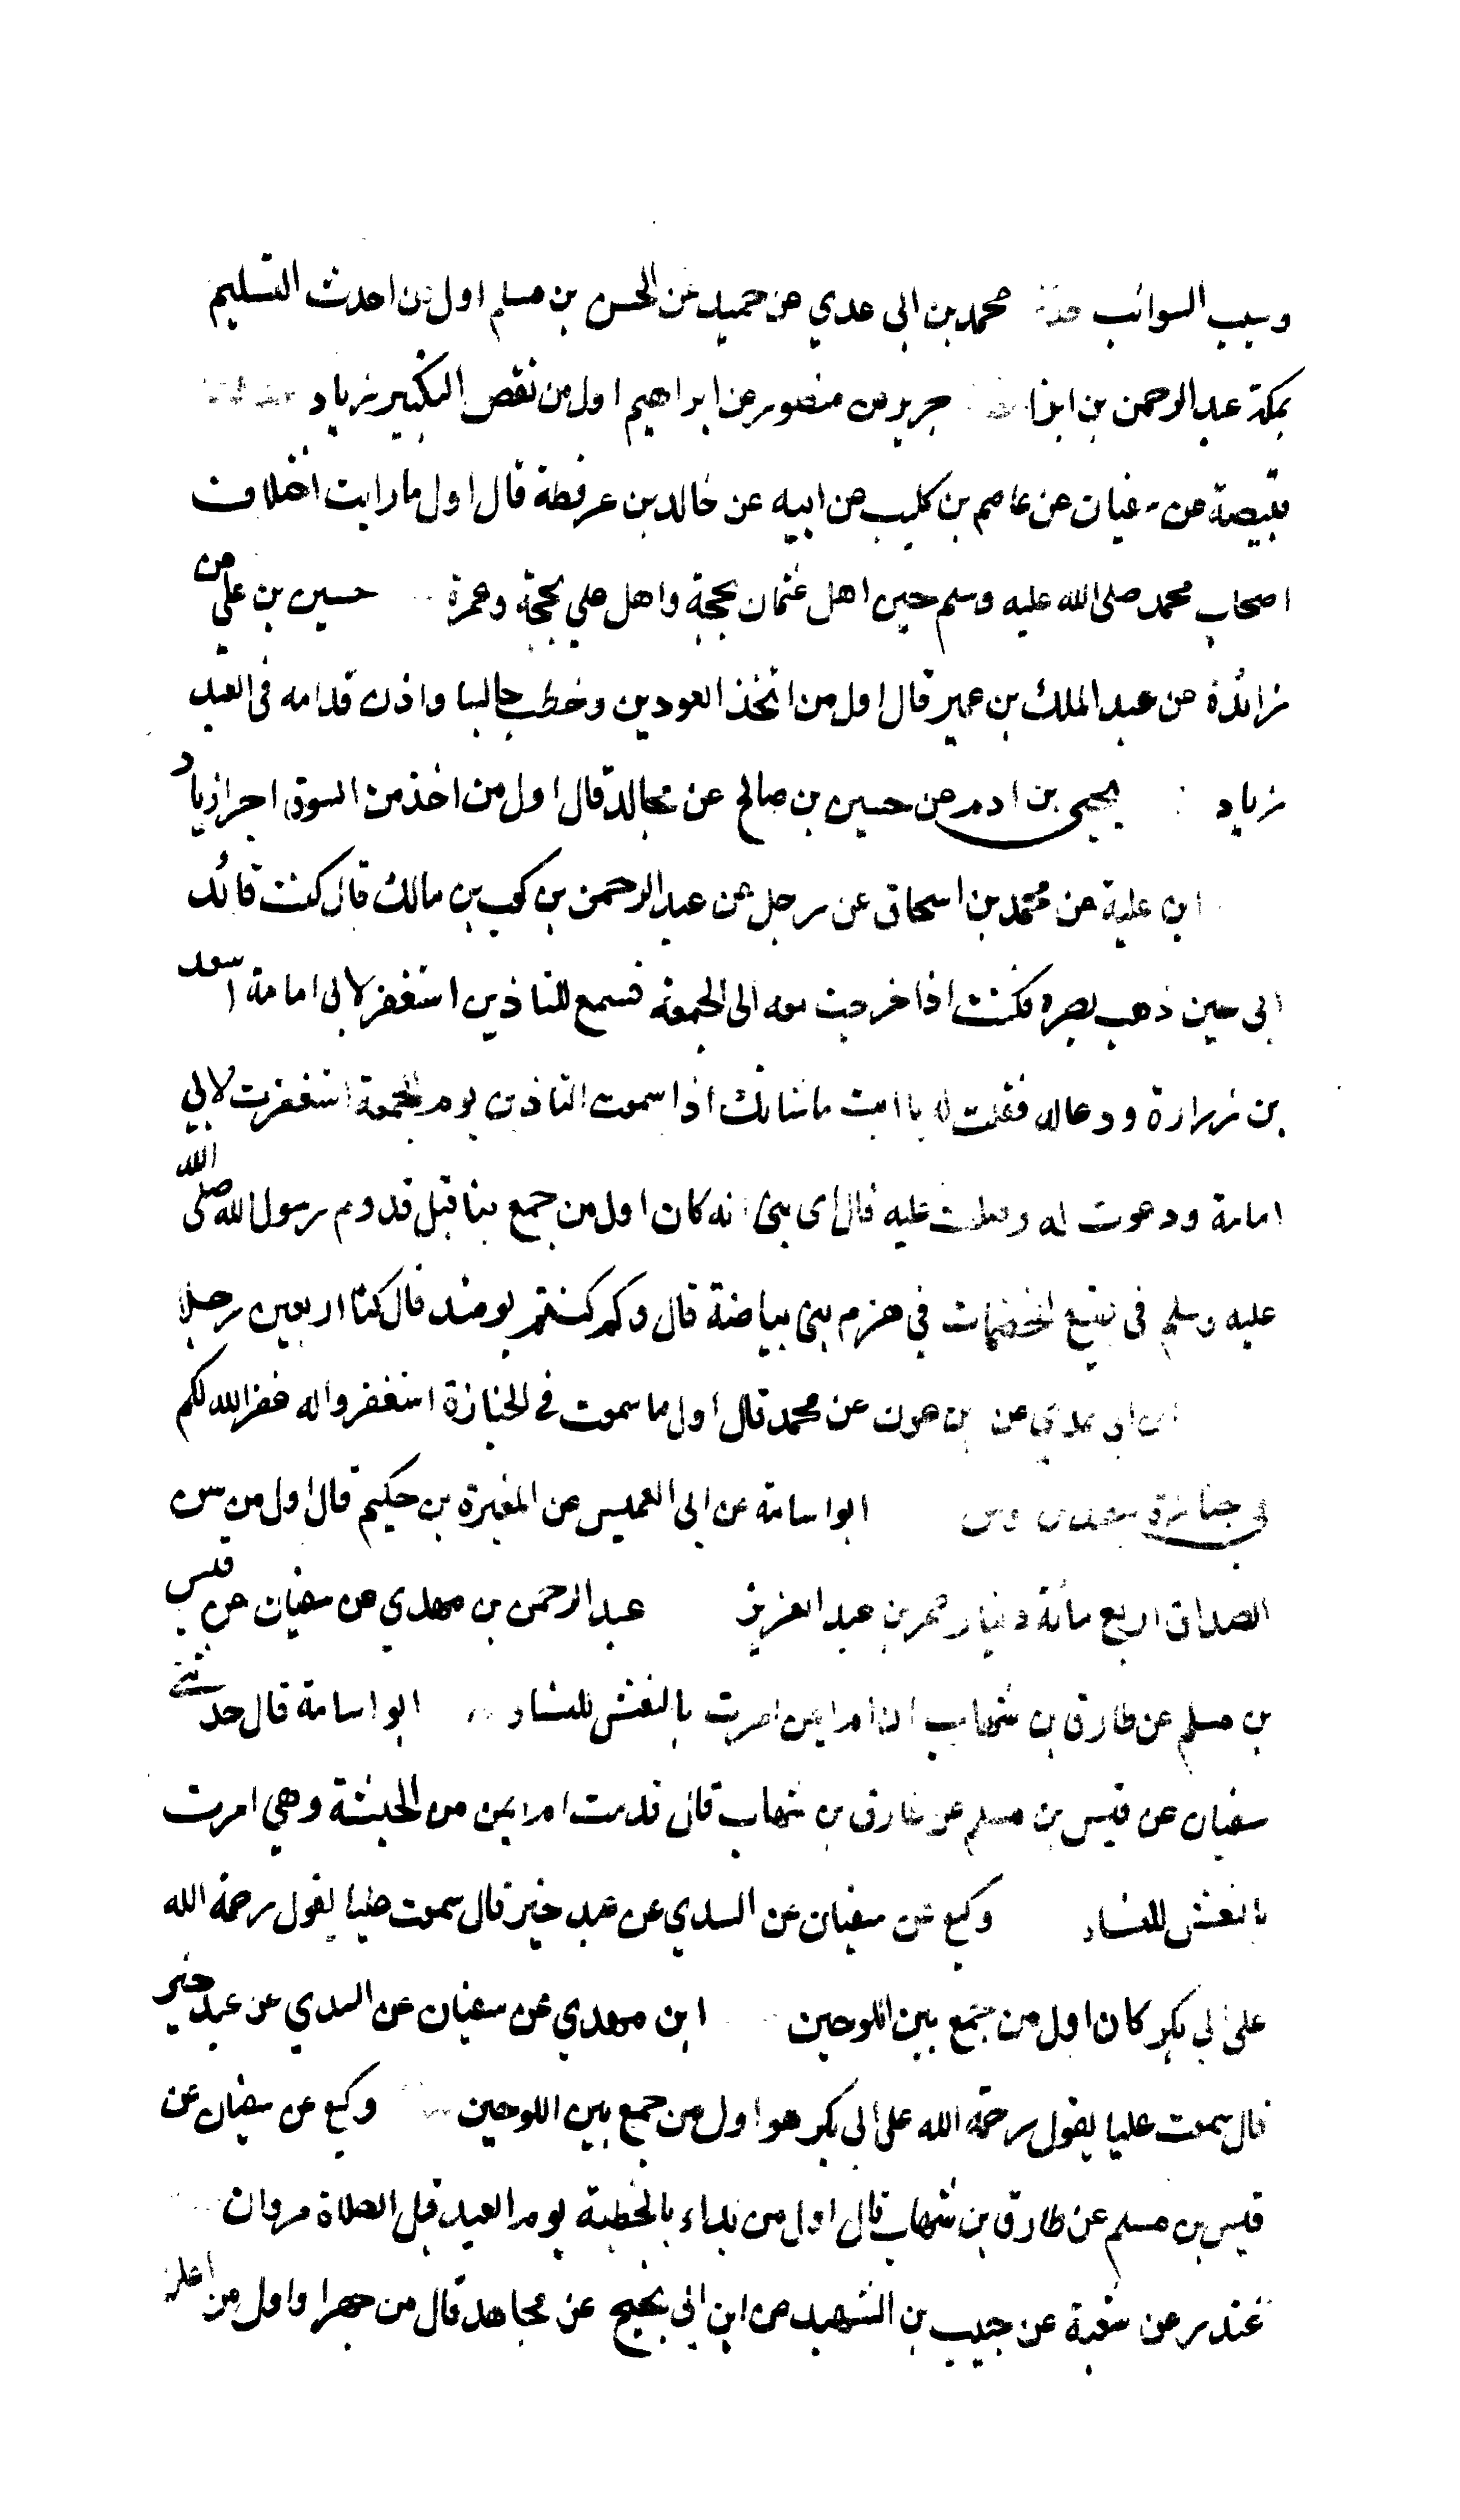 وسيب السوائب محمد بن ابى عدي عن حميد عن الحسن بن مسلم اول من احدث التسليم
بمكة عبد الرحمن بن ابزا جرير عن منصور عن ابراهيم اول من نقص التكبير زياد
قبيصة عن سفيان عن عاصم بن كليب عن ابيه عن خالد بن عرفطة قال اول ما رايت اختلاف
اصحاب محمد صلى الله عليه وسلم حين اهل عثمان بحجة واهل علي بحجة وعمرة حسين بن علي عن
زائدة عن عبد الملك بن عمير قال اول من اتخذ العودين وخطب جالسا واذن قدامه فى العيد
زياد يحيى بن ادم عن حسين بن صالح عن مجالد قال اول من اخذ من السوق اجرا زياد
ابن علية عن محمد بن اسحاق عن رجل عن عبد الرحمن بن كعب بن مالك قال كنت قائد
ابى حين ذهب بصره فكنت اذا خرجت معه الى الجمعة فسمع التاذين استغفر لابى امامة اسعد
بن زرارة ودعا له فقلت له يا ابت ما شانك اذا سمعت التاذين يوم الجمعة استغفرت لابي
امامة ودعوت له وصليت عليه قال اى بنى انه كان اول من جمع بنا قبل قدوم رسول الله صلى الله
عليه وسلم فى نقيع الخضمات في هزم بنى بياضة قال وكم كنتم يومئذ قال كنا اربعين رجلا
ابن ابى عدي عن بن عون عن محمد قال اول ما سمعت في الجنازة استغفروا له غفر الله لكم
في جنازة سعد بن اوس ابو اسامة عن ابى العميس عن المغيرة بن حكيم قال اول من سن
الصداق اربع مائة دينار عمر بن عبد العزيز عبد الرحمن بن مهدي عن سفيان عن قيس
بن مسلم عن طارق بن شهاب ان ام ايمن امرت بالنعش للنساء ابو اسامة قال حدثنى
سفيان عن قيس بن مسلم عن طارق بن شهاب قال قدمت ام ايمن من الحبشة وهي امرت
بالنعش للنساء وكيع عن سفيان عن السدي عن عبد خير قال سمعت عليا يقول رحمة الله
على ابي بكر كان اول من جمع بين اللوحين ابن مهدي عن سفيان عن السدي عن عبد خير
قال سمعت عليا يقول رحمة الله على ابي بكر هو اول من جمع بين اللوحين وكيع عن سفيان عن
قيس بن مسلم عن طارق بن شهاب قال اول من بداء بالخطبة يوم العيد قبل الصلاة مروان
غندر عن شعبة عن حبيب بن الشهيد عن ابن ابي نجيح عن مجاهد قال من جهرا واول من اعلن